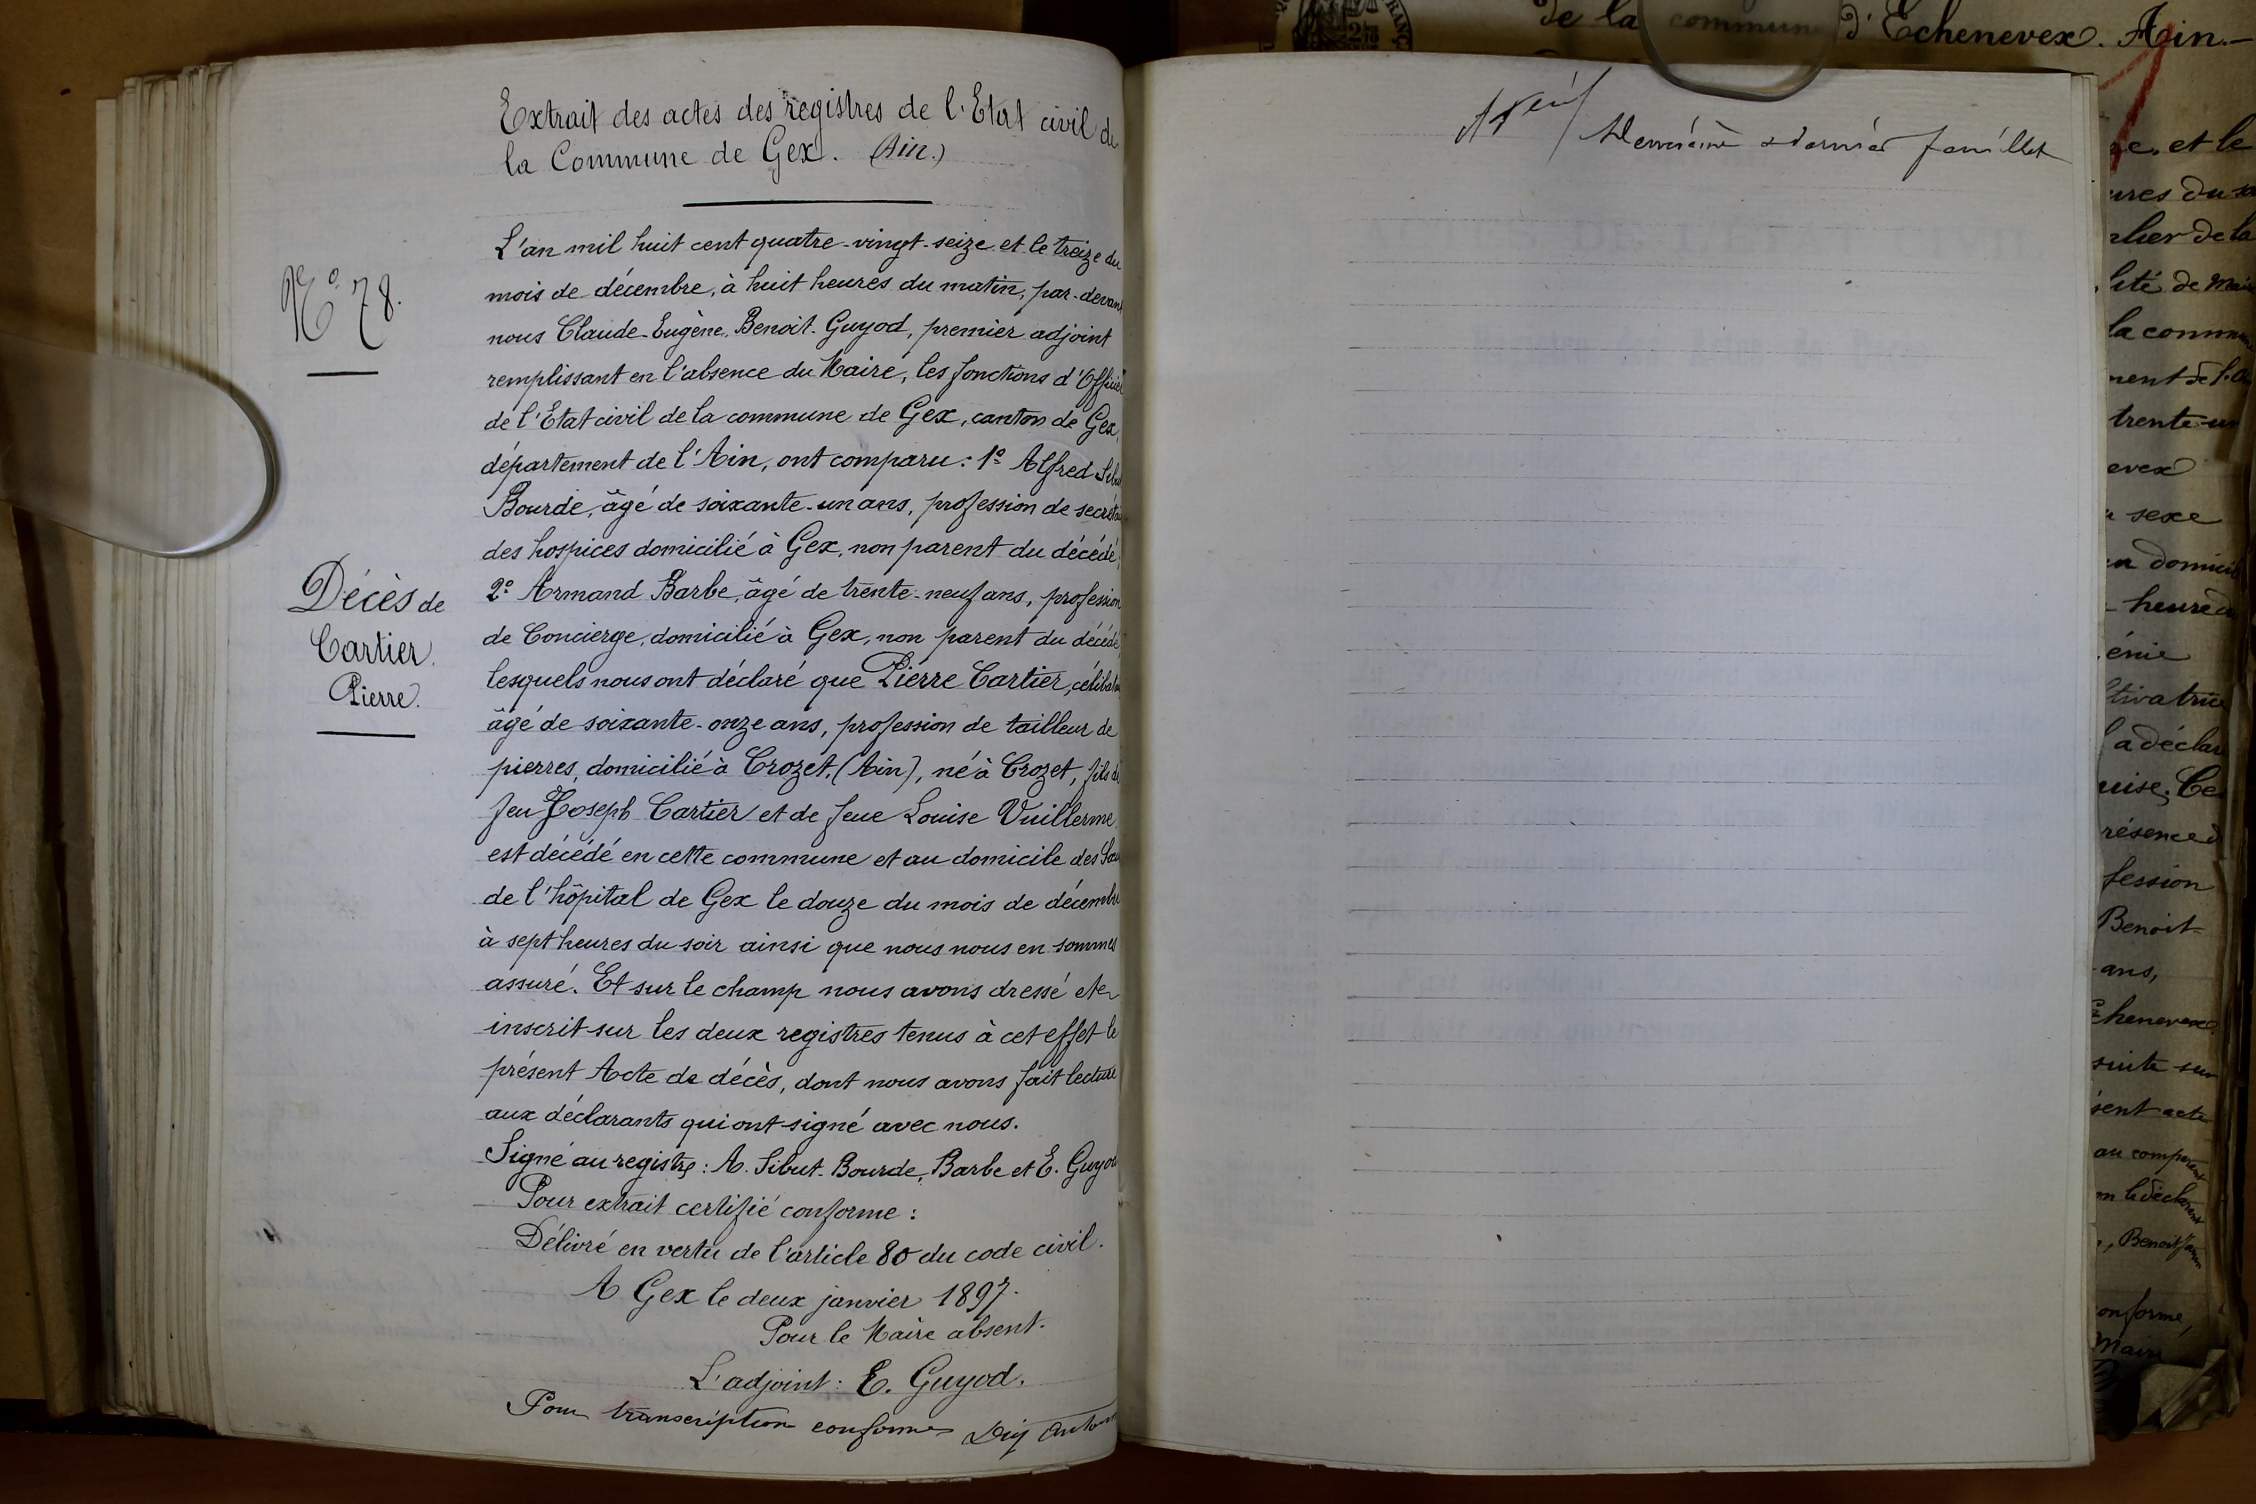 Extrait des actes des registres de l'Etat civil de
la Commune de Gex. (Ain.)
N° 78.
Décès de
Cartier
Pierre.
L'an mil huit cent quatre-vingt-seize et le treize du
mois de décembre, à huit heures du matin, par-devant
nous Claude-Eugène Benoit-Guyod, premier adjoint
remplissant en l'absence du Maire, les fonctions d'Officier
de l'Etat civil de la commune de Gex, canton de Gex,
département de l'Ain, ont comparu : 1° Alfred Sibut
Bourde, âgé de soixante-un ans, profession de secrétaire
des hospices domicilié à Gex, non parent du décédé,
2° Armand Barbe, âgé de trente-neuf ans, profession
de Concierge, domicilié à Gex, non parent du décédé
lesquels nous ont déclaré que Pierre Cartier, célibataire
âgé de soixante-onze ans, profession de tailleur de
pierres, domicilié à Crozet, (Ain), né à Crozet, fils de
feu Joseph Cartier et de feue Louise Vuillerme
est décédé en cette commune et au domicile des
de l'hôpital de Gex le douze du mois de décembre
à sept heures du soir ainsi que nous nous en sommes
assuré. Et sur le champ nous avons dressé et
inscrit sur les deux registres tenus à cet effet le
présent Acte de décès, dont nous avons fait lecture
aux déclarants qui ont signé avec nous.
Signé au registre : A. Sibut-Bourde, Barbe et E. Guyod
Pour extrait certifié conforme :
Délivré en vertu de l'article 80 du code civil.
A Gex le deux janvier 1897.
Pour le Maire absent.
L'adjoint : E. Guyod.
Pour transcription conforme
feuillet
de la commune d'Echenevex. Ain.
et le
du
de la
lité de
la
trente-un
evex
sexe
domicile
heure
a déclaré
Benoit
ans,
Echenevex,
suite sur
acte
Benoit
conforme,